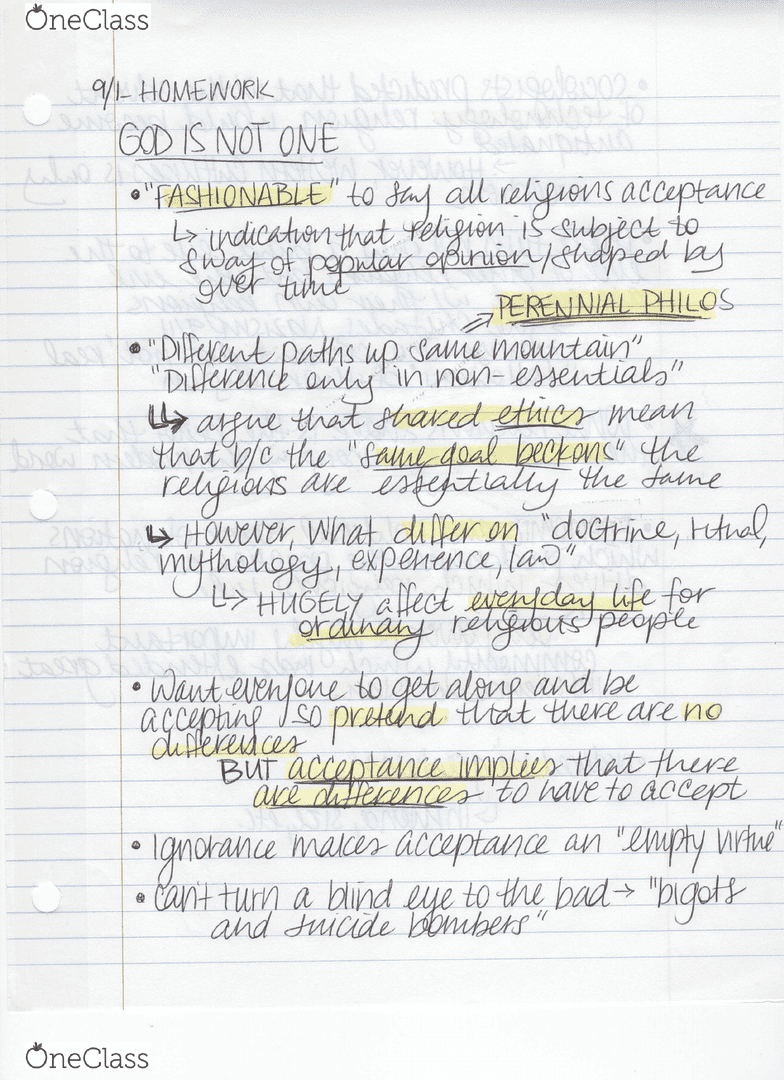 OneClass
9/1- HOMEWORK
GOD IS NOT ONE
• "FASHIONABLE" to say all religions acceptance
↳ indication that religion is subject to
sway of popular opinion/shaped by
over time
PERENNIAL PHILOS
• "Different paths up same mountain"
"Difference only in non-essentials"
↳ argue that shared ethics mean
that b/c the "same goal beckons" the
religions are essentially the same
↳ However, what differ on "doctrine, ritual,
mythology, experience, law"
↳ HUGELY affect everyday life for
ordinary religious people
• Want everyone to get along and be
accepting so pretend that there are no
differences
BUT acceptance implies that there
are differences to have to accept
• Ignorance makes acceptance an "empty virtue"
• Can't turn a blind eye to the bad → "bigots
and suicide bombers"
OneClass